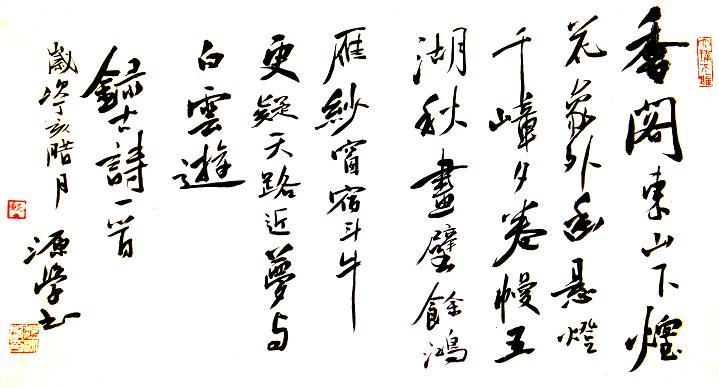 香閣東山下煙
花象外幽懸燈
千嶂夕卷幔五
湖秋畫壁餘鴻
雁紗窗宿斗牛
更疑天路近夢与
白雲遊
録古詩一首
歲次丁亥腊月
源學书